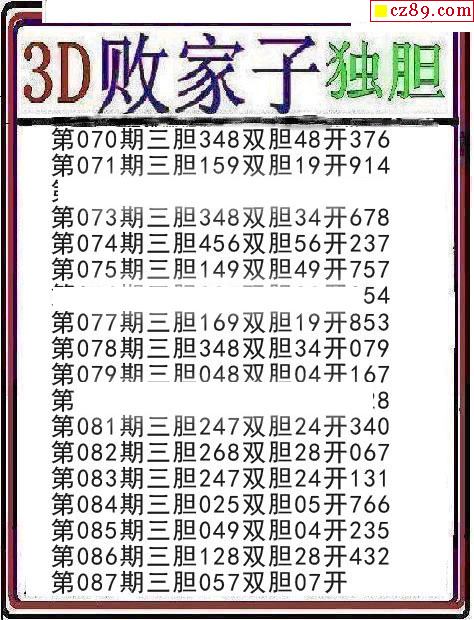 cz89.com
3D败家子独胆
第070期三胆348双胆48开376
第071期三胆159双胆19开914
第073期三胆348双胆34开678
第074期三胆456双胆56开237
第075期三胆149双胆49开757
54
第077期三胆169双胆19开853
第078期三胆348双胆34开079
第079期三胆048双胆04开167
第 28
第081期三胆247双胆24开340
第082期三胆268双胆28开067
第083期三胆247双胆24开131
第084期三胆025双胆05开766
第085期三胆049双胆04开235
第086期三胆128双胆28开432
第087期三胆057双胆07开